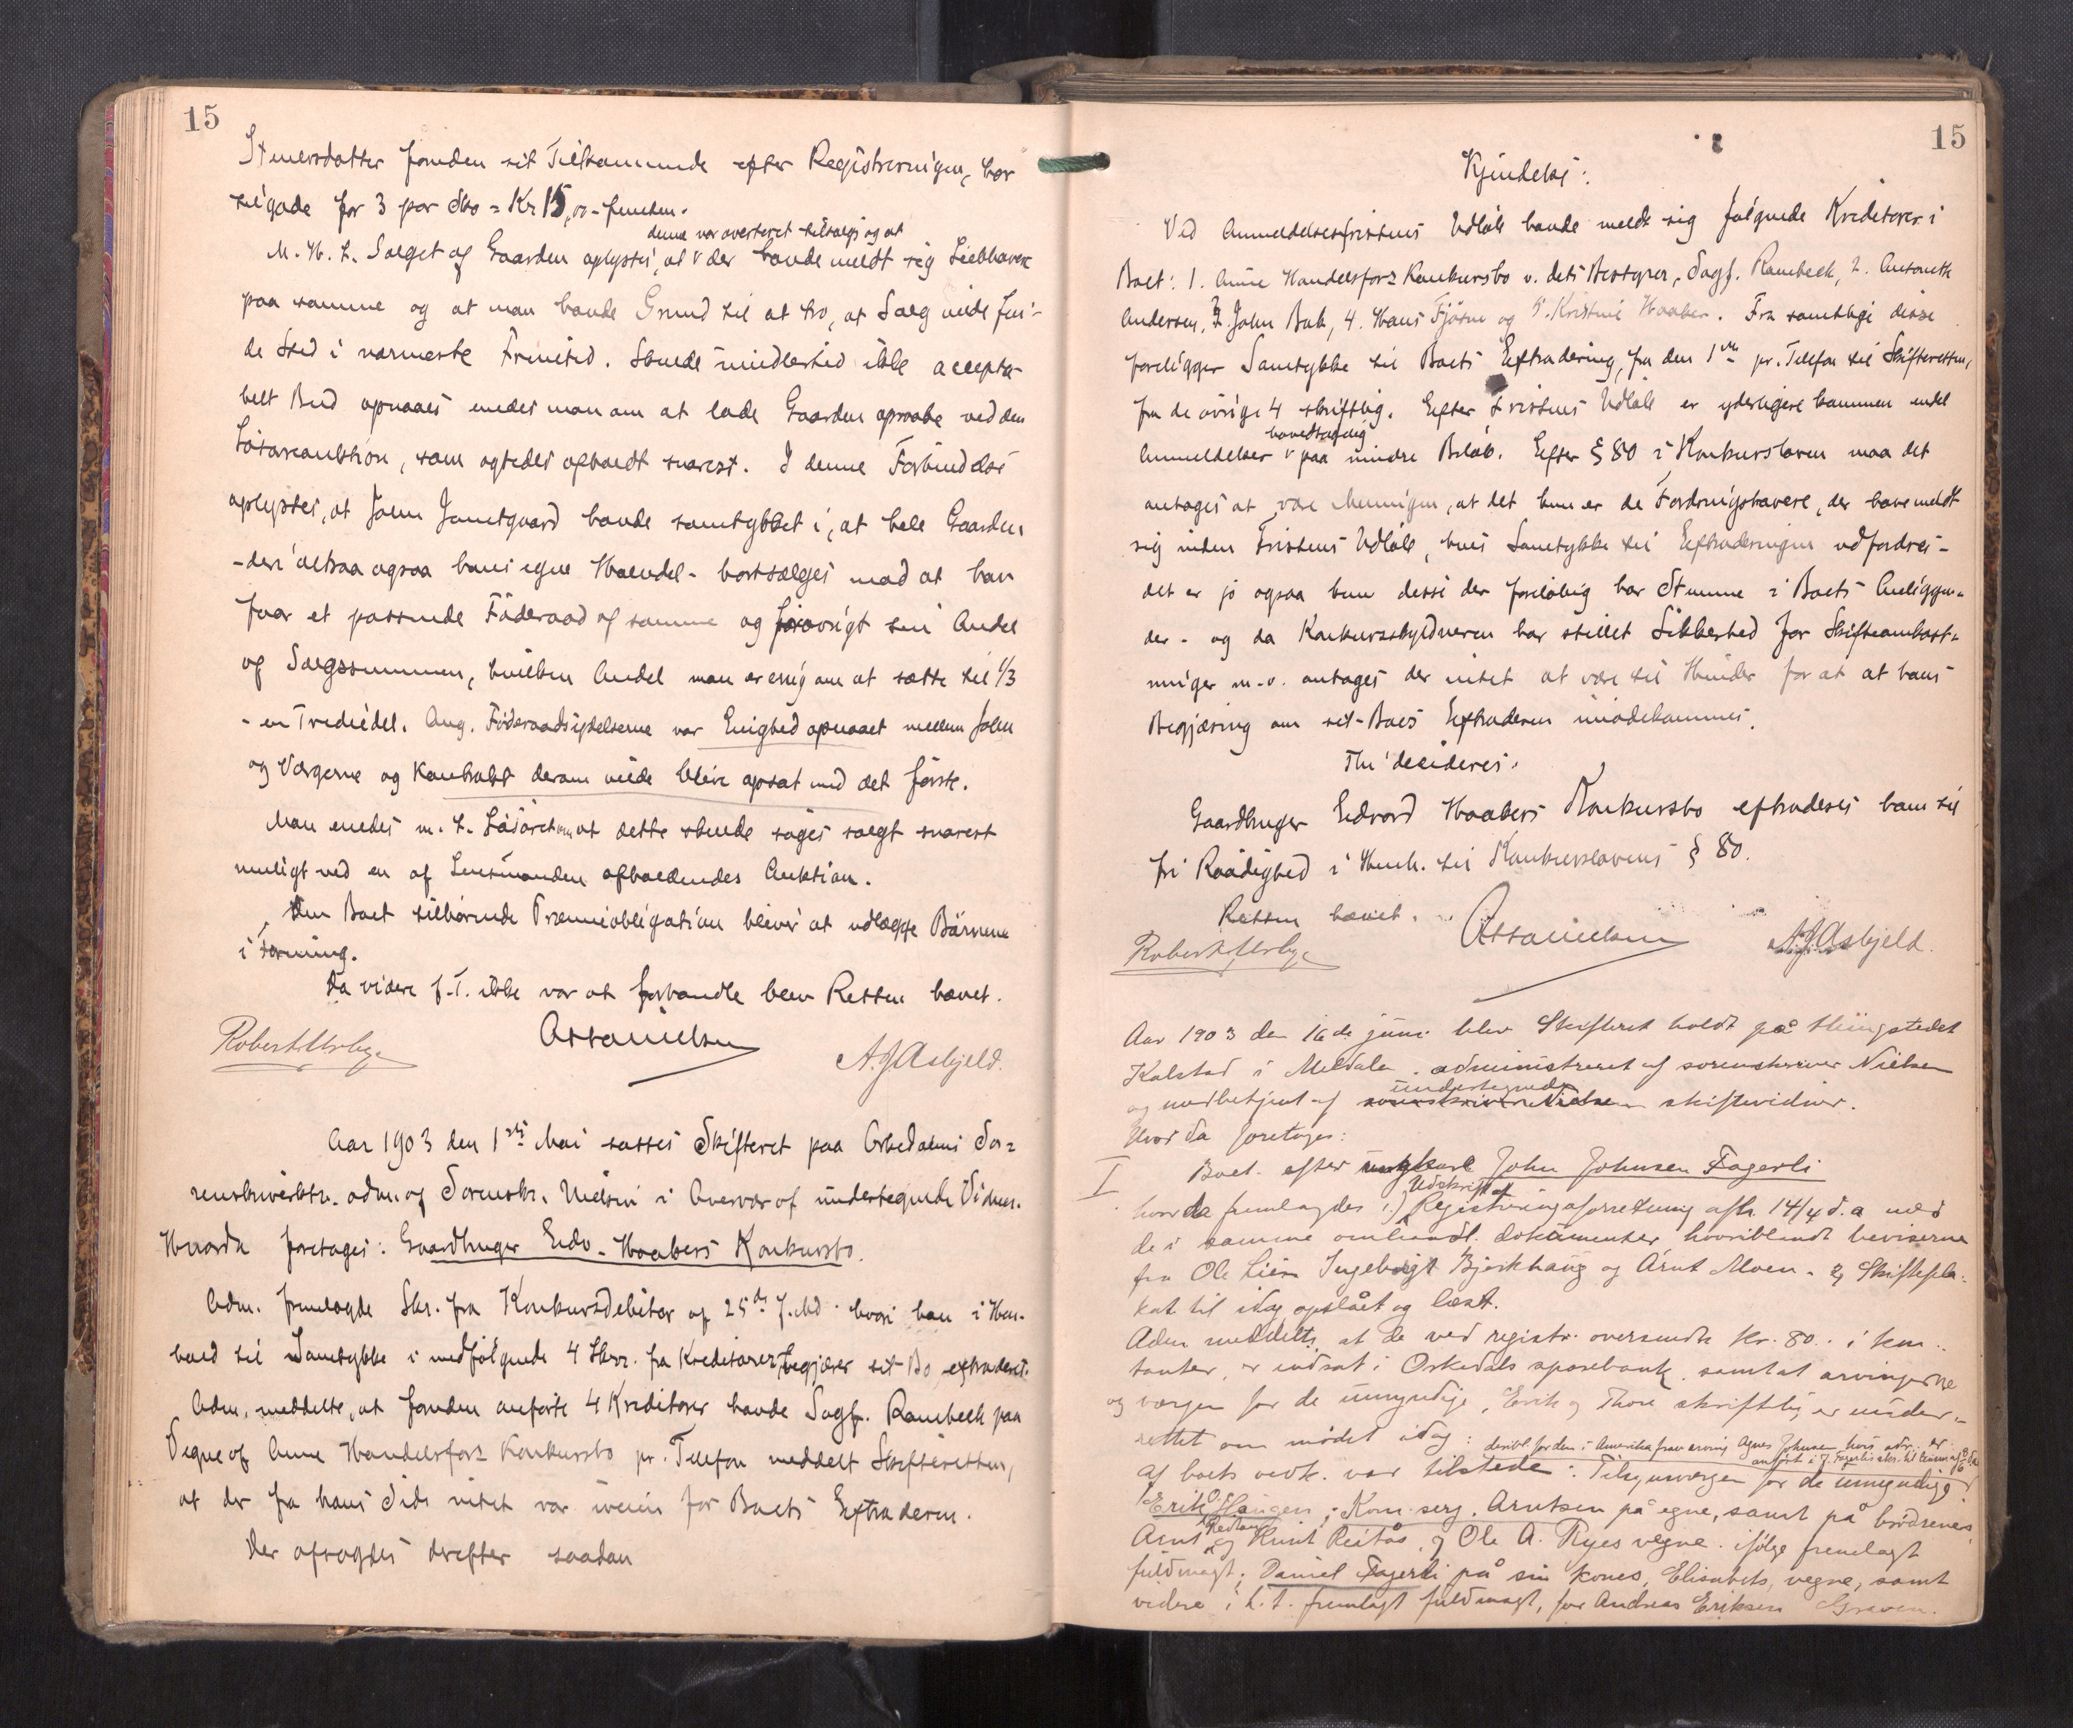 15
Sivertsdatter foruden sit Tilkommende efter Registreringen, har
tilgode for 3 par Sko = Kr 15,00 - femten.
denne var averteret tilsalgs og at
M. H. t. Salget af Gaarden oplystes, at v der havde meldt sig Liebhavere
paa samme og at man havde Grund til at tro, at Salg vilde fin-
de Sted i nærmeste Fremtid. Skulde imidlertid ikke accepta-
belt Bud opnaaes enedes man om at lade Gaarden opraabe ved den
Løsøreauktion, som agtedes afholdt snarest. I denne Forbindelse
oplystes, at John Jametgaard havde samtykket i, at hele Gaarden
- der altsaa ogsaa hans egne Halvdel - bortsælges mod at han
faar et passende Føderaad af samme og forøvrigt sin Andel
af Salgssummen, hvilken Andel man er enig om at sætte til 1/3
- en Trediedel. Ang. Føderaadsydelserne var Enighed opnaaet mellem John
og Værgerne og Kontrakt derom vilde blive opsat med det første.
Man enedes m. H. t. Løsøret om at dette skulde søges solgt snarest
muligt ved en af Lensmanden afholdendes Auktion.
Den Boet tilhørende Præmieobligation bliver at udlægge Børnene
i Forening.
Da videre f. T. ikke var at forhandle blev Retten hævet.
Robert Ursbye Ottonielsen A. J. Asbjeld.
Aar 1903 den 1ste Mai sattes Skifteret paa Orkedalens So-
renskriverktr. adm. af Sorenskr. Nielsen i Overvær af undertegnede Vidner.
Hvorda foretoges: Gaardbruger Edv. Haabers Konkursbo.
Adm. fremlagde Skr. fra Konkursdebitor af 25de f. Md. hvori han i Hen-
hold til Samtykke i medfølgende 4 Skrr. fra Kreditorer begjærer sit Bo extraderet.
Adm. meddelte, at foruden anførte 4 Kreditorer havde Sagf. Rambech paa
Vegne af Anne Handelsforz Konkursbo pr. Telefon meddelt Skifteretten,
at der fra hans Side intet var iveien for Boets Extraderen.
Der afsagdes derefter saadan
15
Kjendelse:
Ved Anmeldelsesfristens Udløb havde meldt sig følgende Kreditorer i
Boet: 1. Anne Handelsforz Konkursbo v. dets Bestyrer, Sagf. Rambech, 2. Antonette
Andersen, 3. John Bak, 4. Hans Fjøsne og 5. Kristine Haaber. Fra samtlige disse
foreligger Samtykke til Boets Extradering, fra den 1ste pr. Telefon til Skifteretten,
fra de øvrige 4 skriftlig. Efter Fristens Udløb er yderligere kommen endel
hovedsagelig
Anmeldelser v paa mindre Beløb. Efter § 80 i Konkursloven maa det
antages at være Meningen, at det kun er de Fordringshavere, der have meldt
sig inden Fristens Udløb, hvis Samtykke til Extraderingen udfordres -
det er jo ogsaa kun disse der foreløbig har Stemme i Boets Anliggen-
der - og da Konkursskyldneren har stillet Sikkerhed for Skifteomkost-
ninger m.v. antages der intet at være til Hinder for at at hans
Begjæring om sit Boes Extraderen imødekommes.
Thi decideres:
Gaardbruger Edvard Haabers Konkursbo extraderes ham til
fri Raadighed i Henh. til Konkurslovens § 80.
Retten hævet.
Robert Ursbye Ottonielsen A. J. Asbjeld.
Aar 1903 den 16de juni blev Skifteret holdt på thingstedet
Kalstad i Meldalen administreret af sorenskriver Nielsen
undertegnede
og medbetjent af sorenskriver Nielsen skiftevidner.
Hvor da foretoges:
I Boet efter ungkarl John Johnsen Fagerli
Udskrift af
hvor da fremlagdes 1) Registreringsforretning afh. 14/4 d. a med
de i samme omhandl. dokumenter hvoriblandt beviserne
fra Ole Lien Ingebrigt Bjørkhaug og Arnt Moen. 2) Skiftepla-
kat til idag opslået og læst.
Adm meddelte, at de ved registr. oversendte kr. 80. i kon-
tanter, er indsat i Orkedals sparebank samt at arvingerne
og værgen for de umyndige, Erik og Thore skriftlig er under-
rettet om mødet idag: desibl. for den i Amerika fravær. arving Agnes Johnsen hvis adr. er
anført i J. Fagerlis skr.
af boets vedk. var tilstede: Tilsynsværgen for de umyndige
Erik O. Haugen; Kom. serg. Arntsen på egne, samt på brødrenes
Arnt Reitan og Knut Reitås, og Ole A. Ryes vegne ifølge fremlagt
fuldmagt; Daniel Fagerli på sin kones, Elisabets, vegne, samt
videre i h. t. fremlagt fuldmagt, for Andreas Eriksen Graven.